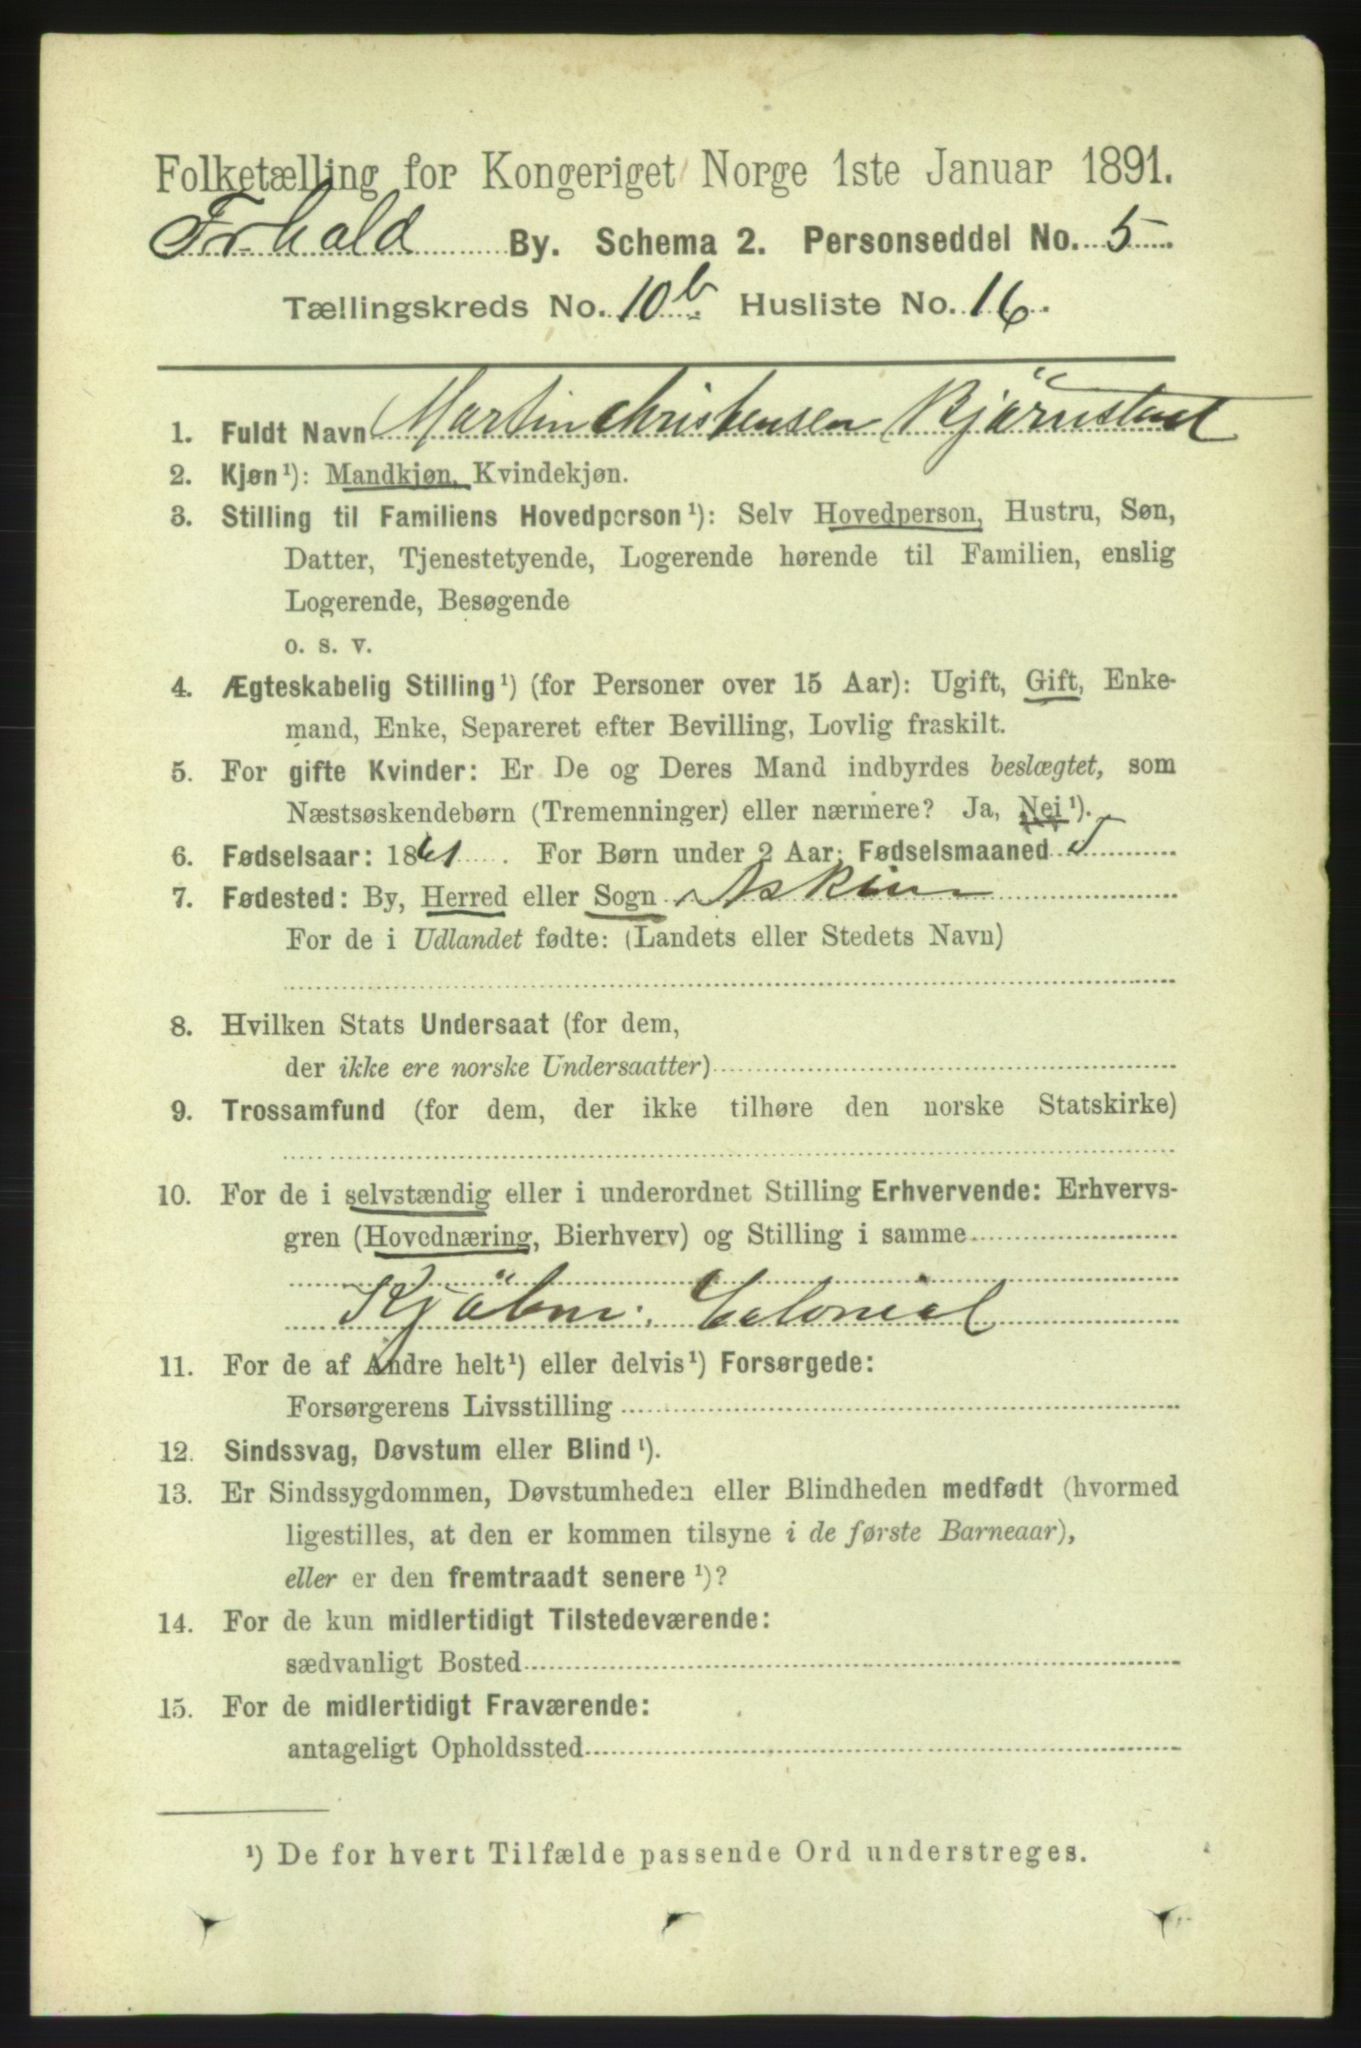 Folketælling for Kongeriget Norge 1ste Januar 1891.
Fr.hald By. Schema 2. Personseddel No. 5
Tællingskreds No. 10 b. Husliste No. 16.
1. Fuldt Navn Martin Christensen Bjørnstad
2. Kjøn¹): Mandkjøn, Kvindekjøn.
3. Stilling til Familiens Hovedperson¹): Selv Hovedperson, Hustru, Søn,
Datter, Tjenestetyende, Logerende hørende til Familien, enslig
Logerende, Besøgende
o. s. v.
4. Ægteskabelig Stilling¹) (for Personer over 15 Aar): Ugift, Gift, Enke-
mand, Enke, Separeret efter Bevilling, Lovlig fraskilt.
5. For gifte Kvinder: Er De og Deres Mand indbyrdes beslægtet, som
Næstsøskendebørn (Tremenninger) eller nærmere? Ja, Nei¹).
6. Fødselsaar: 1861. For Børn under 2 Aar: Fødselsmaaned
7. Fødested: By, Herred eller Sogn Askim
For de i Udlandet fødte: (Landets eller Stedets Navn)
8. Hvilken Stats Undersaat (for dem,
der ikke ere norske Undersaatter)
9. Trossamfund (for dem, der ikke tilhøre den norske Statskirke)
10. For de i selvstændig eller i underordnet Stilling Erhvervende: Erhvervs-
gren (Hovednæring, Bierhverv) og Stilling i samme
Kjöbm. Colonial
11. For de af Andre helt¹) eller delvis¹) Forsørgede:
Forsørgerens Livsstilling
12. Sindssvag, Døvstum eller Blind¹).
13. Er Sindssygdommen, Døvstumheden eller Blindheden medfødt (hvormed
ligestilles, at den er kommen tilsyne i de første Barneaar),
eller er den fremtraadt senere¹)?
14. For de kun midlertidigt Tilstedeværende:
sædvanligt Bosted
15. For de midlertidigt Fraværende:
antageligt Opholdssted
¹) De for hvert Tilfælde passende Ord understreges.